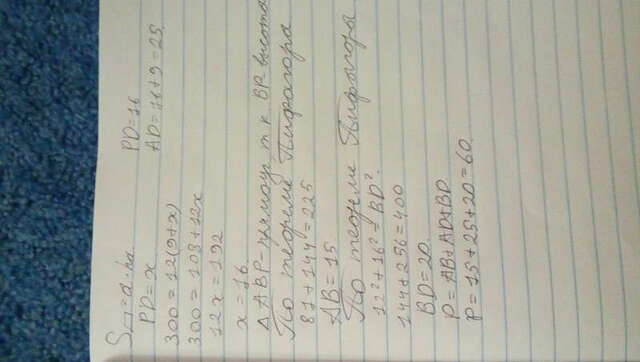 S▱=a·ha
PD=x
300=12(9+x)
300=108+12x
12x=192
x=16.
PD=16
AD=16+9=25
△ABP-прямоуг, т.к. BP-высота
По теореме Пифагора
81+144=225
AB=15
По теореме Пифагоры
12²+16²=BD².
144+256=400
BD=20.
P=AB+AD+BD
P=15+25+20=60.